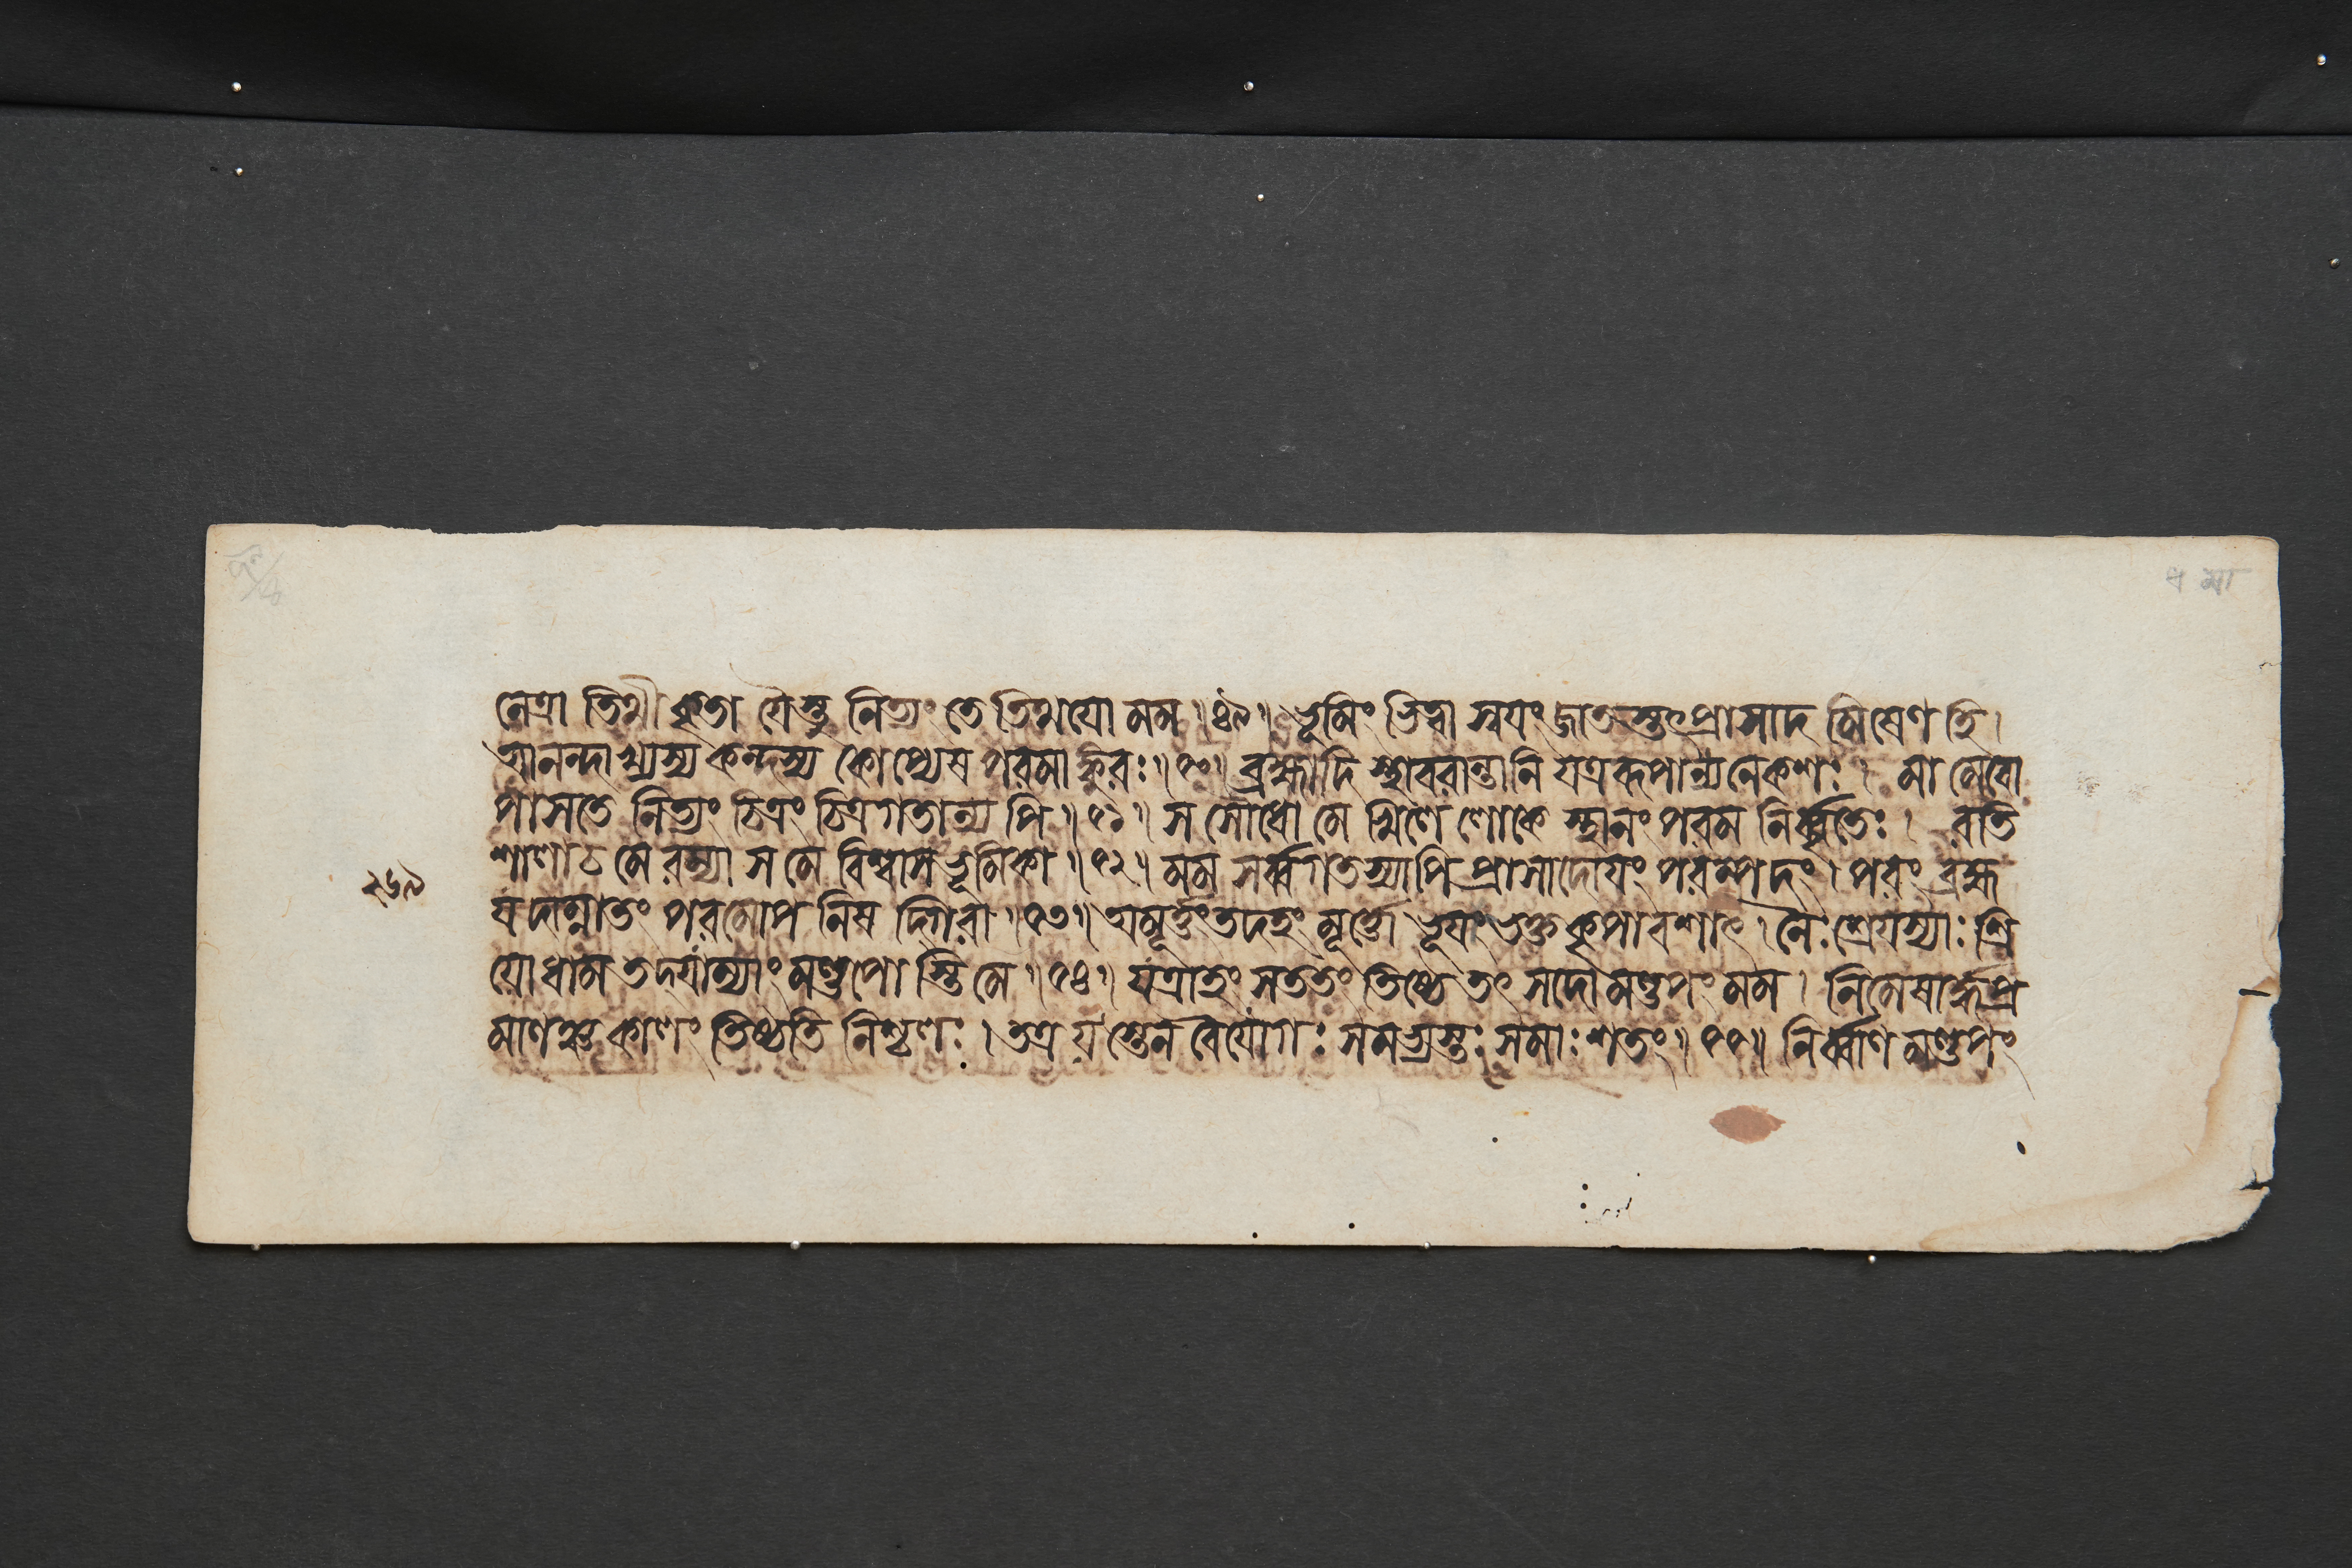 নেত্রাতিথীকৃতা যৈস্তু নিত্যং তেতিথয়ো মম ॥৪৯॥ ভূমিং ভিত্বা স্বয়ং জাতস্তৎপ্রাসাদমিষেণ হি।
আনন্দাখ্যস্য কন্দস্য কোপ্যেষ পরমাঙ্কুরঃ ॥৫০॥ ব্রহ্মাদিস্থাবরান্তানি যত্র রূপান্যনেকশঃ । মামেবো
পাসতে নিত্যং চিত্রং চিত্রগতান্যপি ॥৫১॥ স সৌধো মেখিলে লোকে স্থানং পরমনির্ব্বৃতেঃ । রতি
শালাচ মে রম্যা স মে বিশ্বাসভূমিকা ॥৫২॥ মম সর্ব্বগতস্যাপি প্রাসাদোয়ং পরম্পদং । পরং ব্রহ্ম
২৬৯
যদাম্নাতং পরমোপনিষদ্গিরা ॥৫৩॥ অমূর্ত্তং তদহং মূর্ত্তো ভূয়াং ভক্তকৃপাবশাৎ । নৈঃশ্রেয়স্যাঃ শ্রি
য়োধাম তদ্যাম্যাং মণ্ডপোস্তি মে ॥৫৪॥ যত্রাহং সততং তিষ্ঠে তৎ সদোমণ্ডপং মম । নিমেষার্দ্ধপ্র
মাণঞ্চ কালং তিষ্ঠতি নিশ্চলঃ । তত্র যস্তেন বৈ যোগঃ সমভ্যস্তঃ সমাঃ শতং ॥৫৫॥ নির্ব্বাণমণ্ডপং